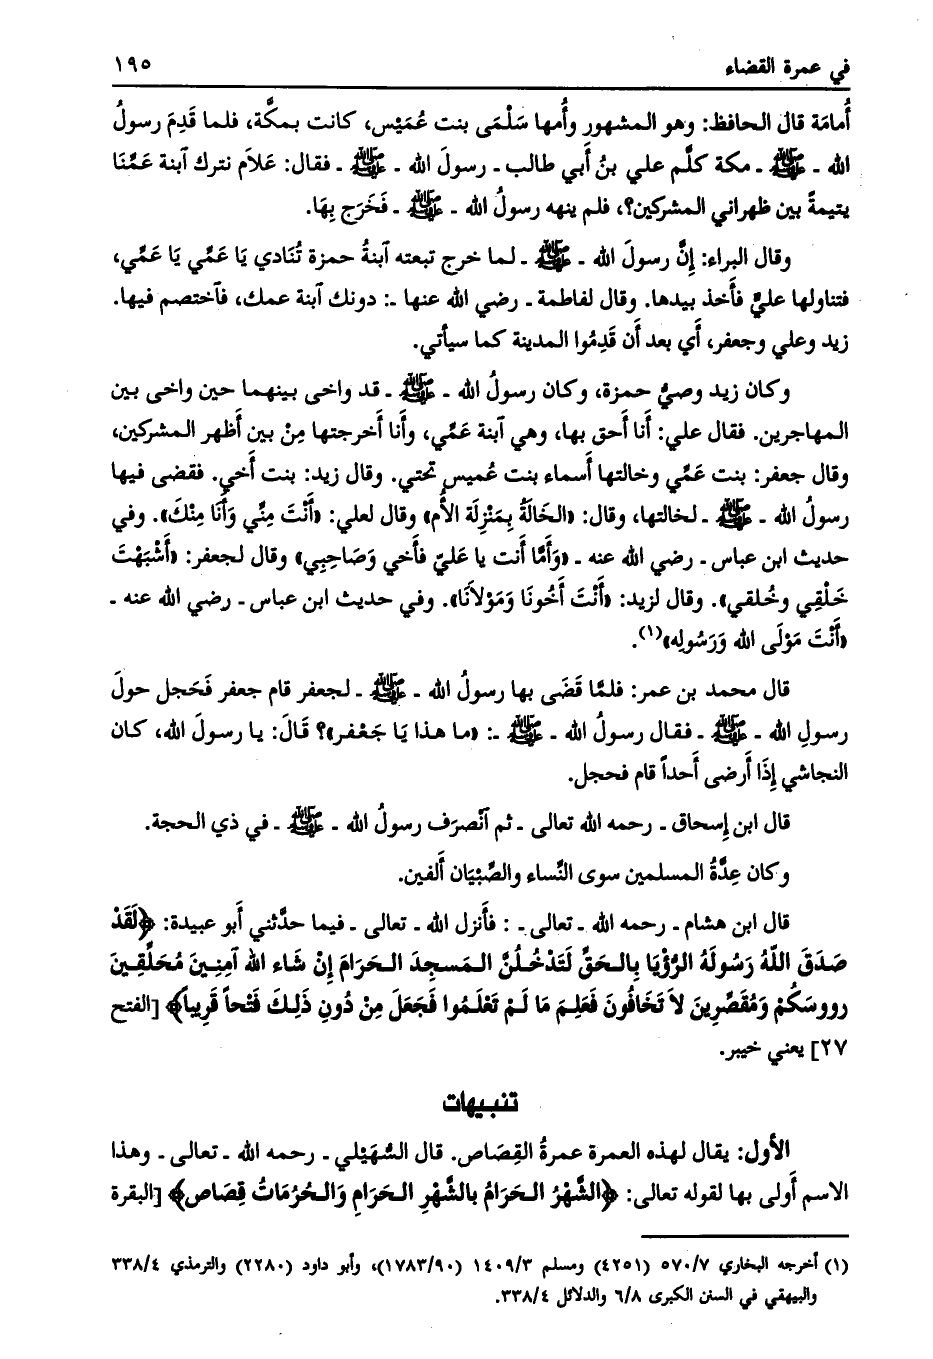 في عمرة القضاء ١٩٥
أُمامَة قال الحافظ: وهو المشهور وأُمها سَلْمَى بنت عُمَيْس، كانت بمكَّة، فلما قَدِمَ رسولُ
الله - ﷺ - مكة كلَّم علي بنُ أَبي طالب - رسولَ الله - ﷺ - فقال: عَلاَم نترك ٱبنة عَمِّنَا
يتيمةً بين ظهراني المشركين؟، فلم ينهه رسولُ الله - ﷺ - فَخَرَج بِهَا.
وقال البراء: إِنَّ رسولَ الله - ﷺ - لما خرج تبعته ٱبنةُ حمزة تُنَادي يَا عَمِّي يَا عَمِّي،
فتناولها عليٌّ فأَخذ بيدها. وقال لفاطمة - رضي الله عنها -: دونك ٱبنة عمك، فٱختصم فيها.
زيد وعلي وجعفر، أَي بعد أَن قَدِمُوا المدينة كما سيأتي.
وكان زيد وصيُّ حمزة، وكان رسولُ الله - ﷺ - قد واخى بينهما حين واخى بين
المهاجرين. فقال علي: أَنا أَحق بها، وهي ٱبنة عَمِّي، وأَنا أَخرجتها مِنْ بين أَظهر المشركين،
وقال جعفر: بنت عَمِّي وخالتها أَسماء بنت عُميس تحْتي. وقال زيد: بنت أَخي. فقضى فيها
رسولُ الله - ﷺ - لخالتها، وقال: «الخَالَةُ بِمَنْزِلَة الأُم» وقال لعلي: «أَنْتَ مِنِّي وَأَنَا مِنْكَ». وفي
حديث ابن عباس - رضي الله عنه - «وَأَمَّا أنت يا عَليّ فأَخي وَصَاحِبِي» وقال لجعفر: «أَشْبَهْتَ
خَلْقِي وخُلقي». وقال لزيد: «أَنْتَ أَخُونَا وَمَوْلاَنَا». وفي حديث ابن عباس - رضي الله عنه -
«أَنْتَ مَوْلَى الله وَرَسُولِه»(١).
قال محمد بن عمر: فلمَّا قَضَى بها رسولُ الله - ﷺ - لجعفر قام جعفر فَحَجل حولَ
رسولِ الله - ﷺ - فقال رسولُ الله - ﷺ -: «ما هذا يَا جَعْفر»؟ قَالَ: يا رسولَ الله، كان
النجاشي إِذَا أَرضى أَحداً قام فحجل.
قال ابن إِسحاق - رحمه الله تعالى - ثم ٱنْصرَف رسولُ الله - ﷺ - في ذي الحجة.
وكان عِدَّةُ المسلمين سوى النِّساء والصِّبْيَان أَلفين.
قال ابن هشام - رحمه الله - تعالى - : فأَنزل الله - تعالى - فيما حدَّثني أَبو عبيدة: ﴿لَقَدْ
صَدَقَ اللَّهُ رَسُولَهُ الرُّؤْيَا بِالحَقِّ لَتَدْخُلُنَّ المَسجِدَ الحَرَامَ إِنْ شَاء الله آمِنِينَ مُحَلِّقِينَ
رووسَكُمْ وَمُقَصِّرِينَ لاَ تَخَافُونَ فَعَلِمَ مَا لَمْ تَعْلَمُوا فَجَعَلَ مِنْ دُونِ ذَلِكَ فَتْحاً قَرِيباً﴾ [الفتح
٢٧] يعني خيبر.
تنبيهات
الأول: يقال لهذه العمرة عمرةُ القِصَاص. قال السُّهَيْلي - رحمه الله - تعالى - وهذا
الاسم أَولى بها لقوله تعالى: ﴿الشَّهْرُ الحَرَامُ بالشَّهْرِ الحَرَامِ وَالحُرُمَاتُ قِصَاص﴾ [البقرة
(١) أخرجه البخاري ٥٧٠/٧ (٤٢٥١) ومسلم ١٤٠٩/٣ (١٧٨٣/٩٠)، وأبو داود (٢٢٨٠) والترمذي ٣٣٨/٤
والبيهقي في السنن الكبرى ٦/٨ والدلائل ٣٣٨/٤.